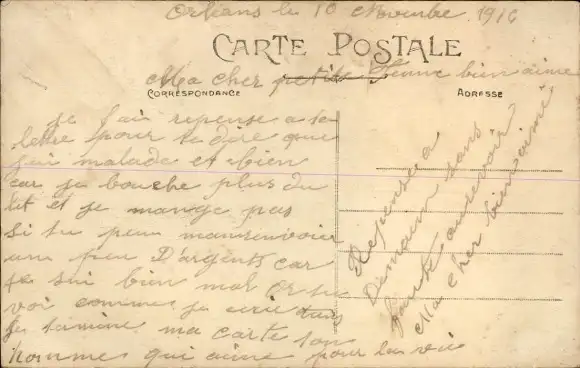 Orléans le 10 Novembre 1916
CARTE POSTALE
Ma cher petite Femme bien aimé
CORRESPONDANCE
ADRESSE
je fai repense a ta
letre pour te dire que
fai malade et bien
car je bouche plus du
lit et je mange pas
si tu peux manrenvoier
une peu D'argents car
je sui bien mal
voi comme je
ma carte ton
hommes qui aime pour la vie
Repense a
Demain sans
faute aurevoir
Ma cher bien aimé